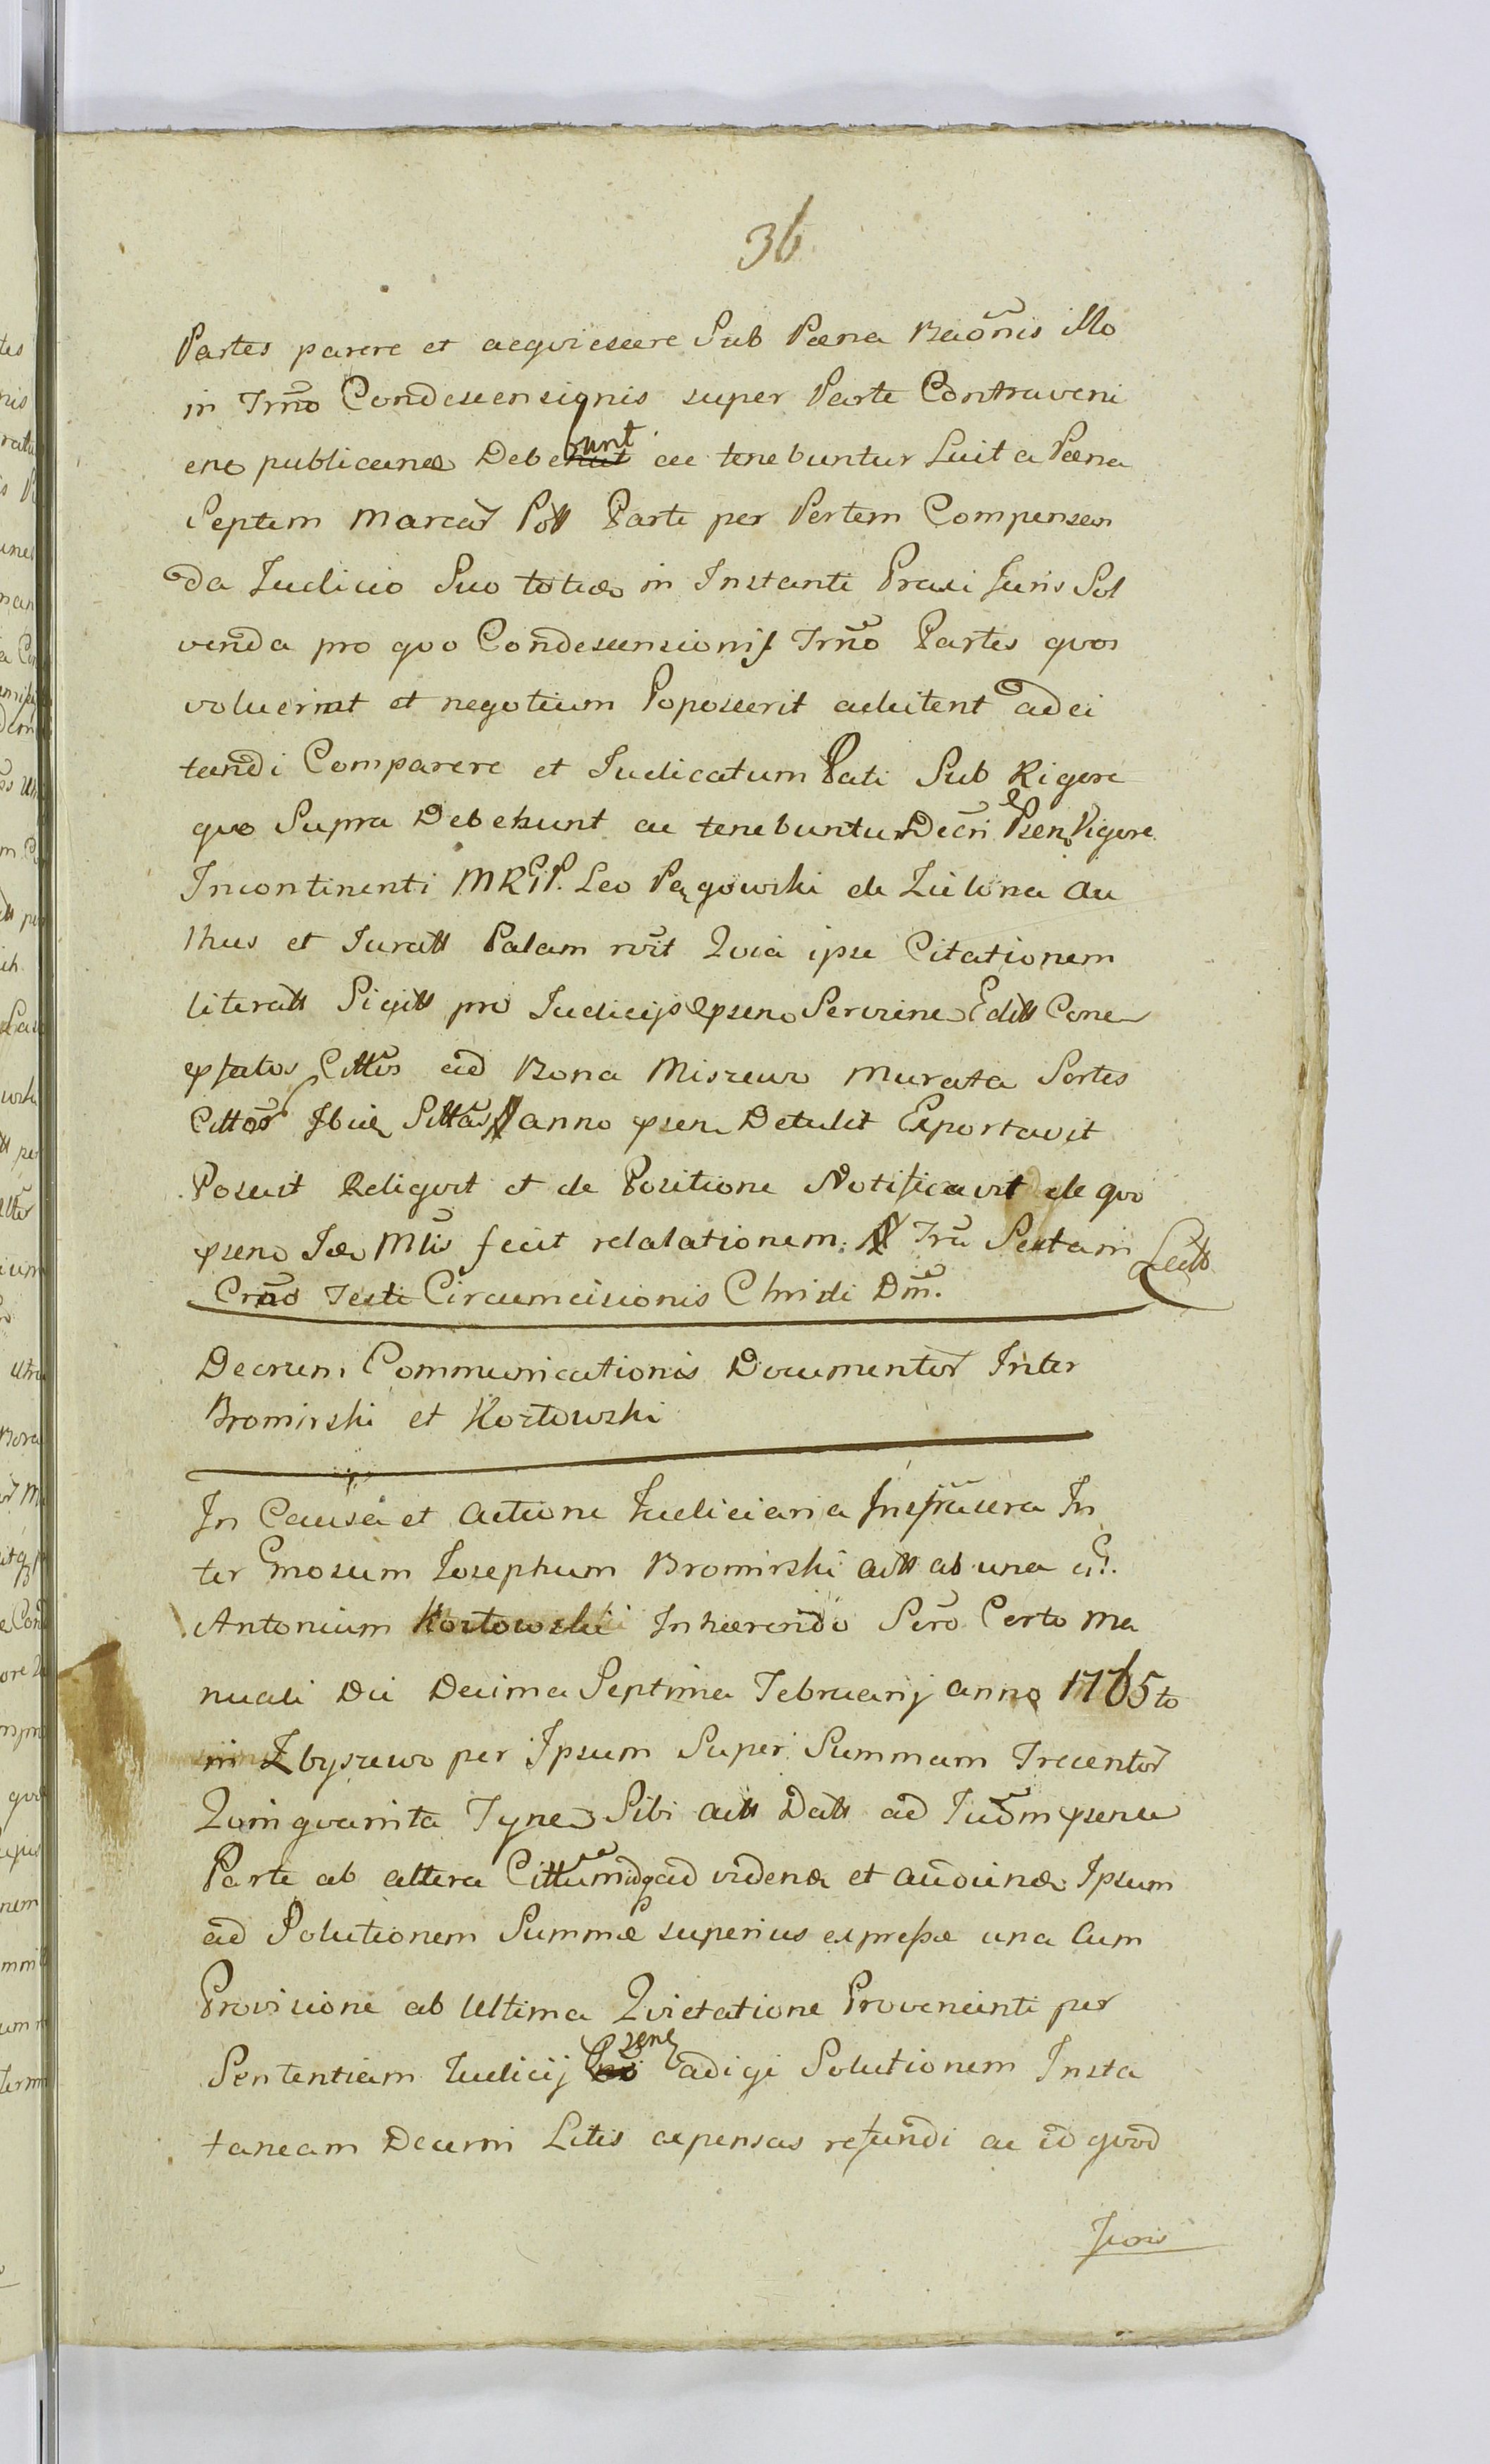 36
Partes parere et acqviescere Sub Pæna Baõnis illo
in Trño Condescensionis super Parte Contraveni
ene publicanda Debebunt ac tenebuntur Luita Pæna
Septem Marcar Poll Parte per Partem Compensan
da Iudicio Suo toties in Instanti Praxi Iuris Sol
venda pro qvo Condescensionis Trño Partes qvos
voluerint et negotium Poposcerit adcitent adci
tandi Comparere et Iudicatum Pati Sub Rigore
qvo Supra Debebunt ac tenebuntur Decri Psen Vigore
Incontinenti MRIP. Leo Pągowski de Zielona Au
thus et Iuratt Palam rvit Qvia ipse Citationem
literatt Sigitt pro Iudicijs psen Servien Editt Con
exfatos Cittos ad Bona Miszewo Murata Sortes
Cittor Ibid Sittas anno psen Detulit Exportavit
Posuit Reliqvit et de Positione Notificavit de qvo
psen Iæo Mlis fecit relalationem. Tru Sextam
Crño Festi Circumcisionis Christi Dñi. Lectt
Decrum Communicationis Documentor Inter
Bromirski et Koztowski
In Causa et Actione Iudiciaria Infrascra In
ter Gnosum Iosephum Bromirski Actt ab una G.
Antonium Koztowski Inhærendo Scro Certo Ma
nuali Die Decima Septima Februarij Anno 1765to
in Zbyszewo per Ipsum Super Summam Trecentor
Qvinqvaginta Tyn Sibi Actt Datt ad Iudm psens
Parte ab altera Cittum idq ad videnda et audienda Ipsum
ad Solutionem Summæ superius expressæ una Cum
Provisione ab Ultima Qvietatione Provenienti per
Sententiam Iudicij Psens adigi Solutionem Insta
taneam Decerni Litis expensas refundi ac id qvod
Iuris